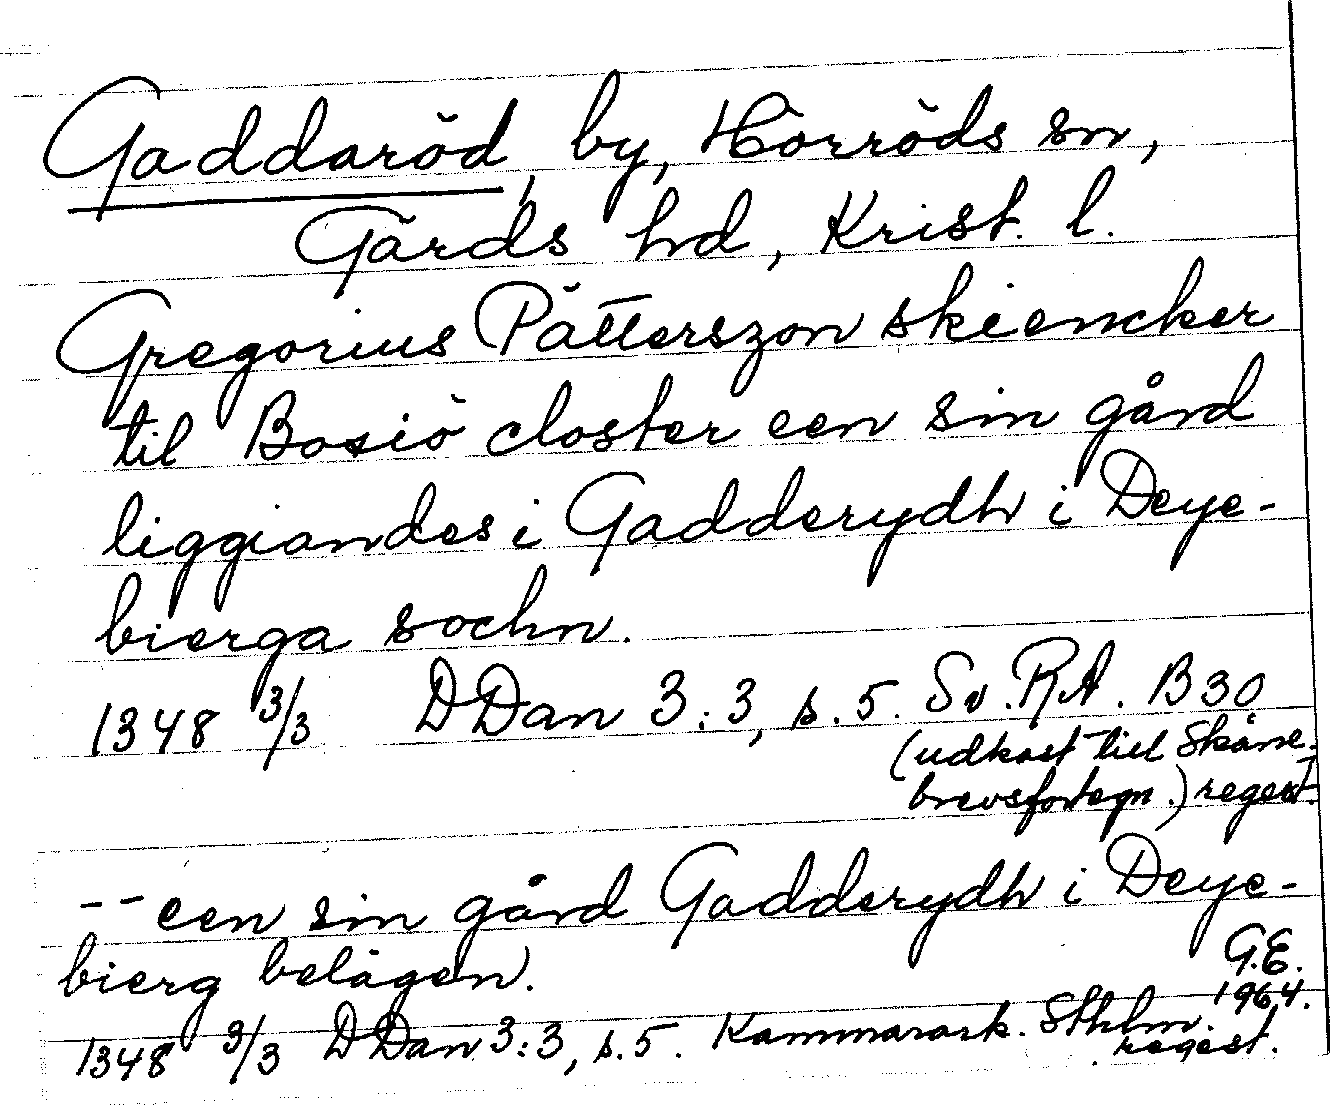 Gaddaröd, by, Hörröds sn,
Gärds hd, Krist. l.
Gregorius Pätterszon skiencker
til Bosiö closter een sin gård
liggiandes i Gadderydh i Deye-
bierga sochn.
1348 3/3 DDan 3:3, s. 5. Sv. RA. B 30
(udkast till Skåne-
brevsfortegn.) regest.
-- een sin gård Gadderydh i Deye-
bierg belägen.
G.E.
1964.
1348 3/3 DDan 3:3, s. 5. Kammarark. Sthlm.
regest.